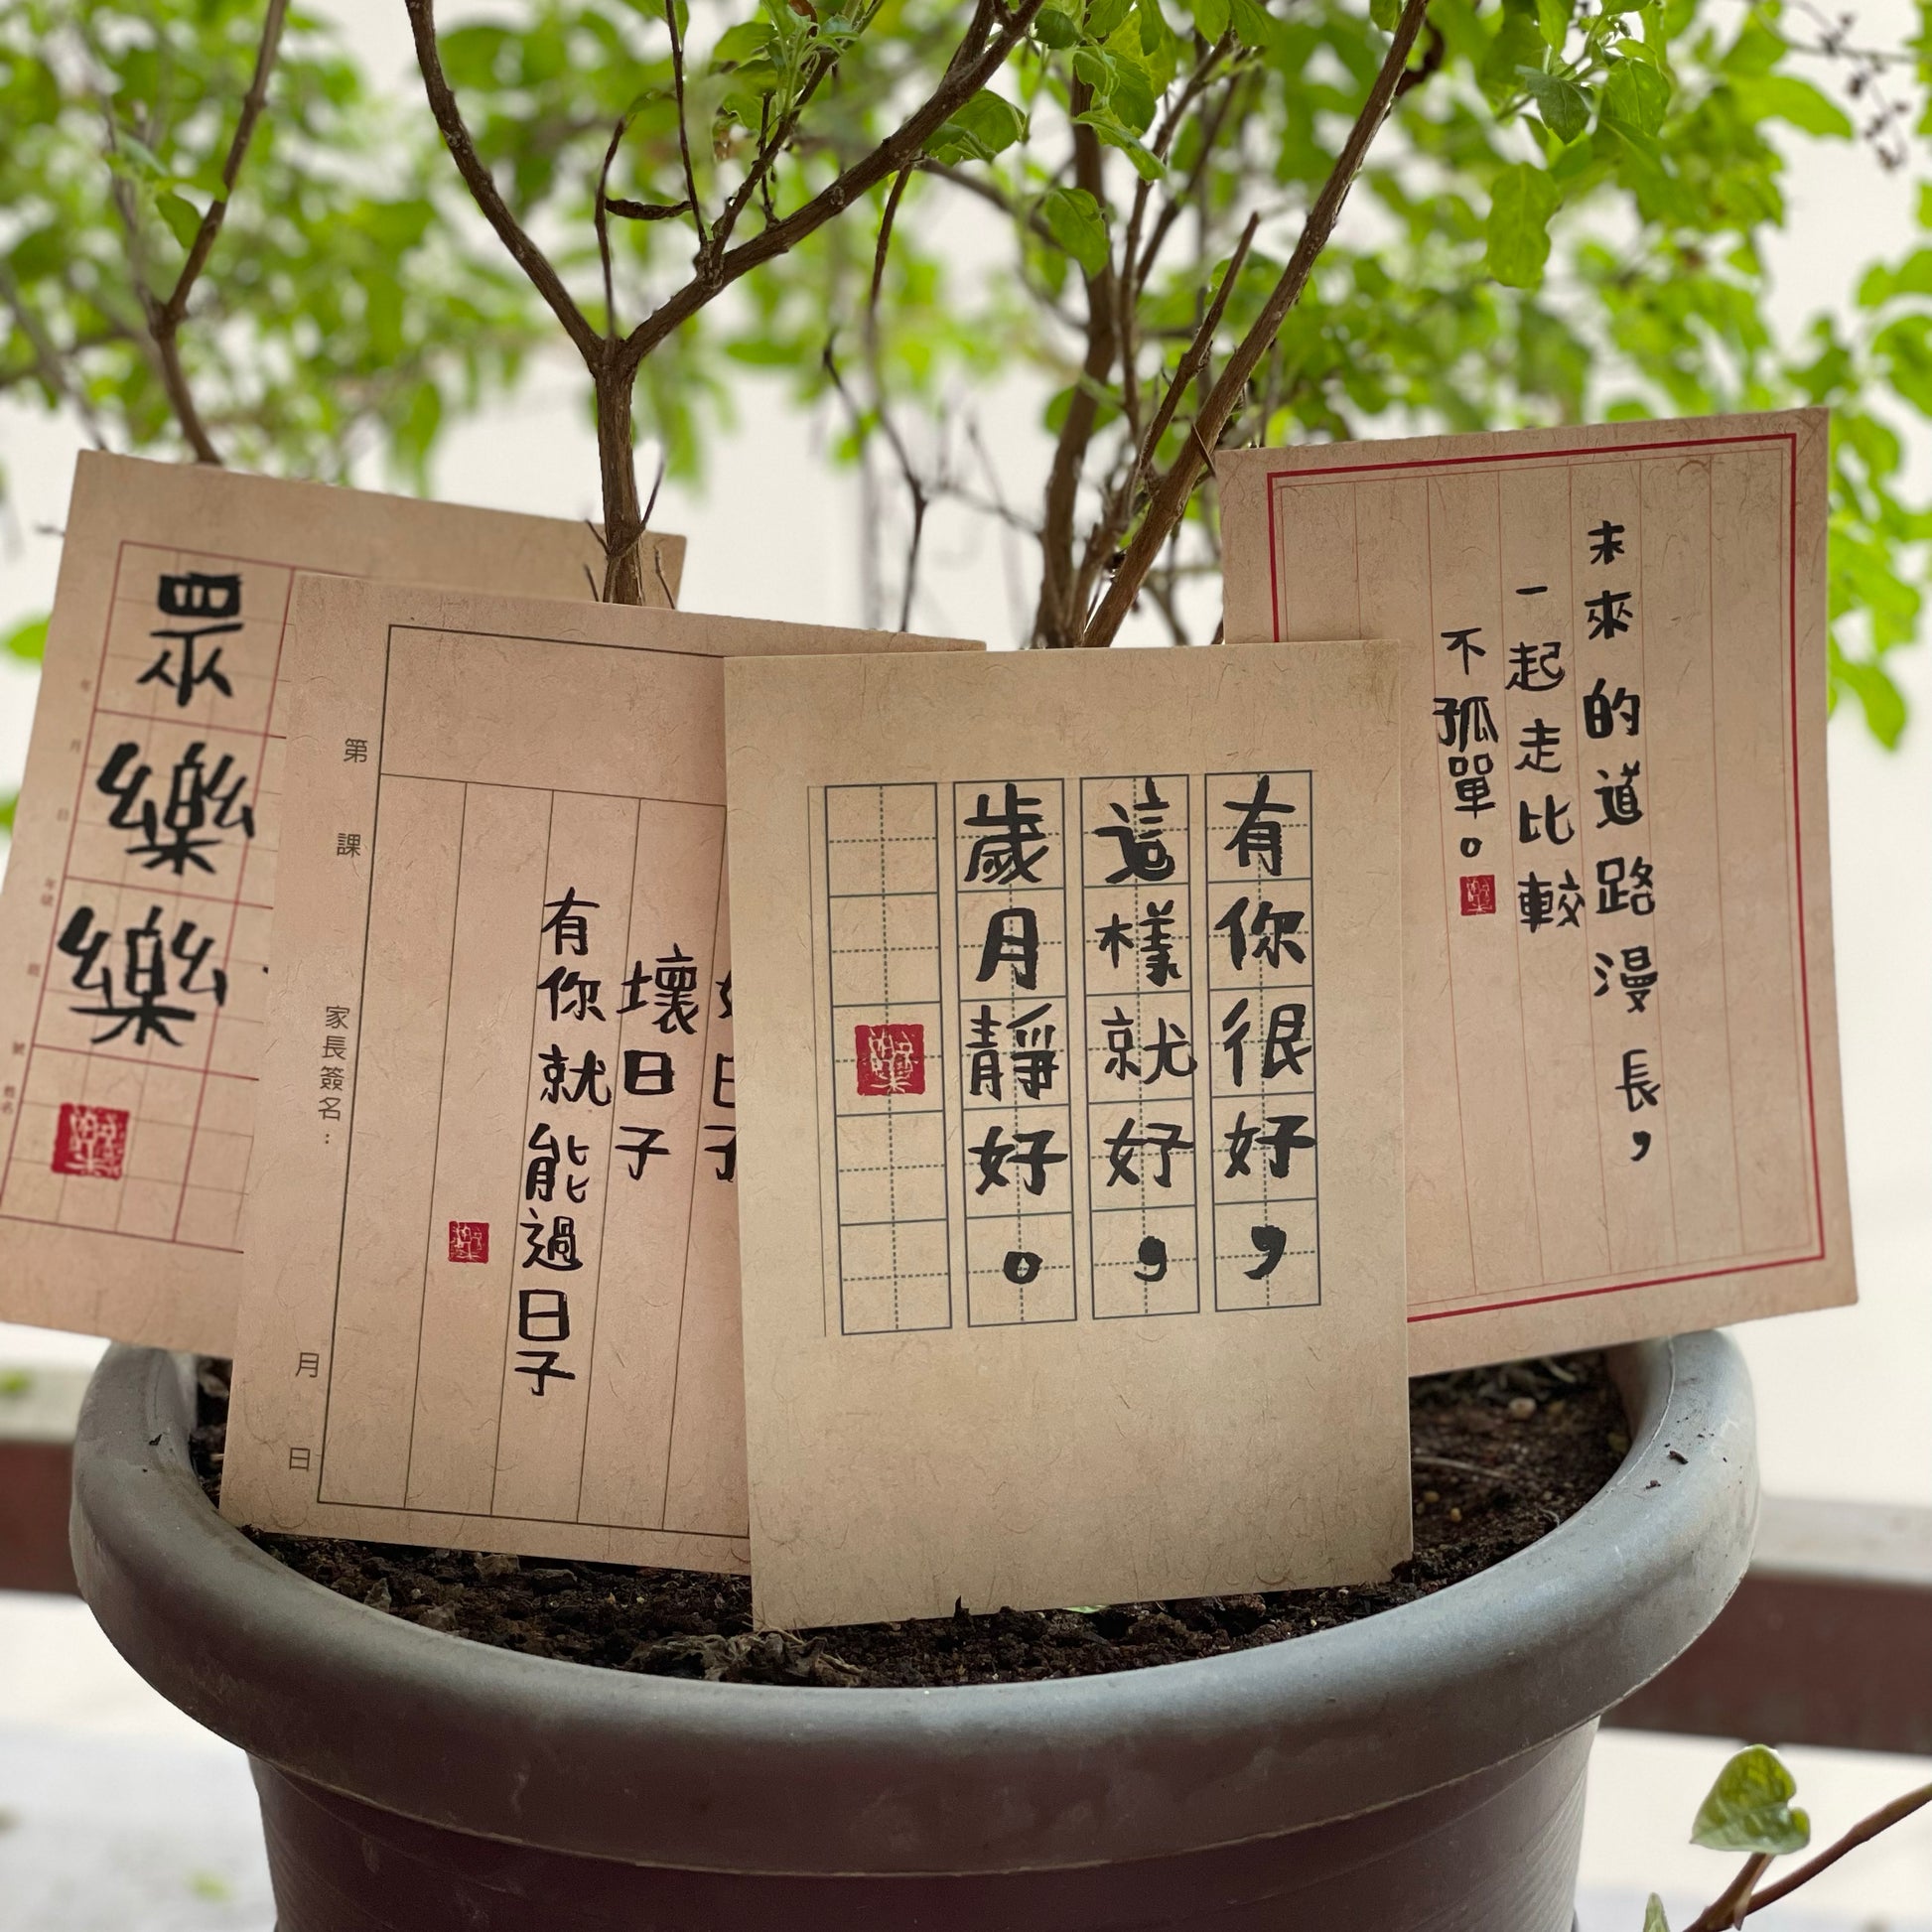 未來的道路漫長，
一起走比較
不孤單。
有你很好，
這樣就好，
歲月靜好。
壞日子
有你就能過日子
第 課 家長簽名： 月 日
眾樂樂
年 月 日 年級 班 號 姓名